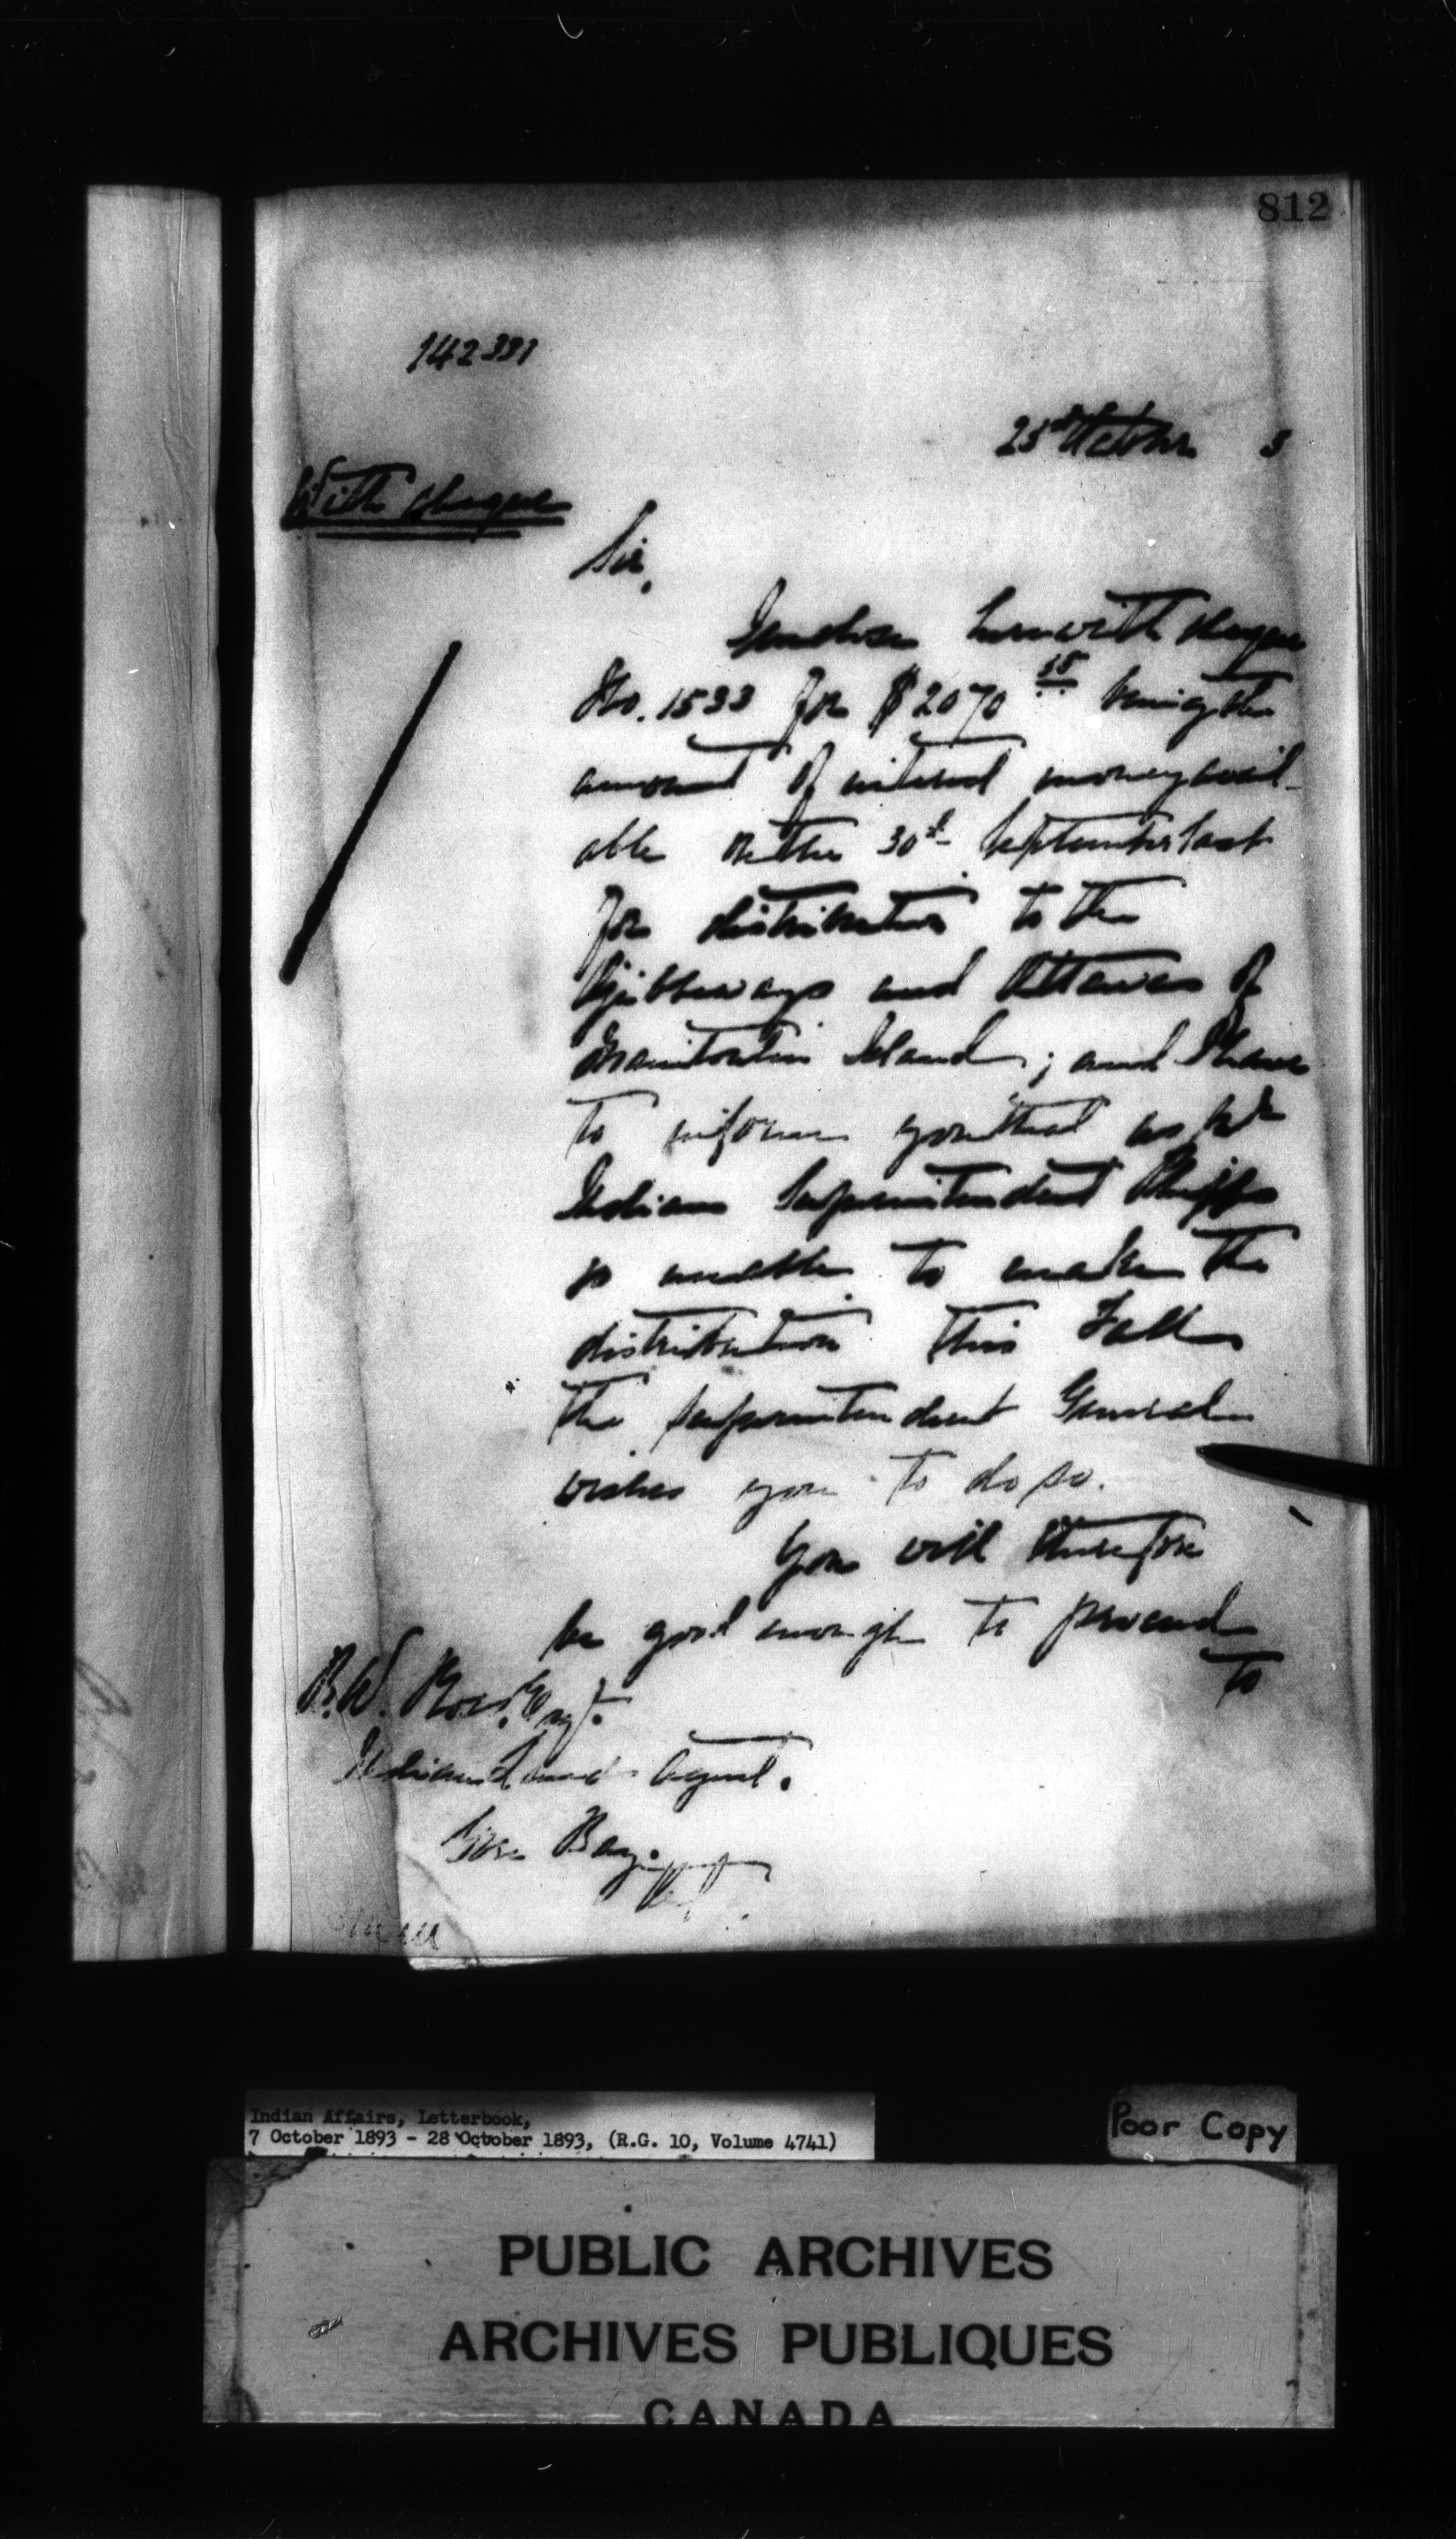 812
142391
25th October 3
With Cheque
Sir,
I enclose herewith cheque
No. 1533 for $2070 58 being the
amount of interest money avail-
able on the 30th September last
for distribution to the
Ojibbeways and Ottawas of
Manitoulin Island; and I have
to inform you that as
Indian Superintendent Phipps
is unable to make the
distribution this Fall
the Superintendent General
wishes you to do so.
You will therefore
be good enough to proceed
to
B.W. Ross, Esq.
Indian Land Agent.
Gore Bay.
Indian Affairs, Letterbook,
7 October 1893 - 28 October 1893, (R.G. 10, Volume 4741)
Poor Copy
PUBLIC ARCHIVES
ARCHIVES PUBLIQUES
CANADA